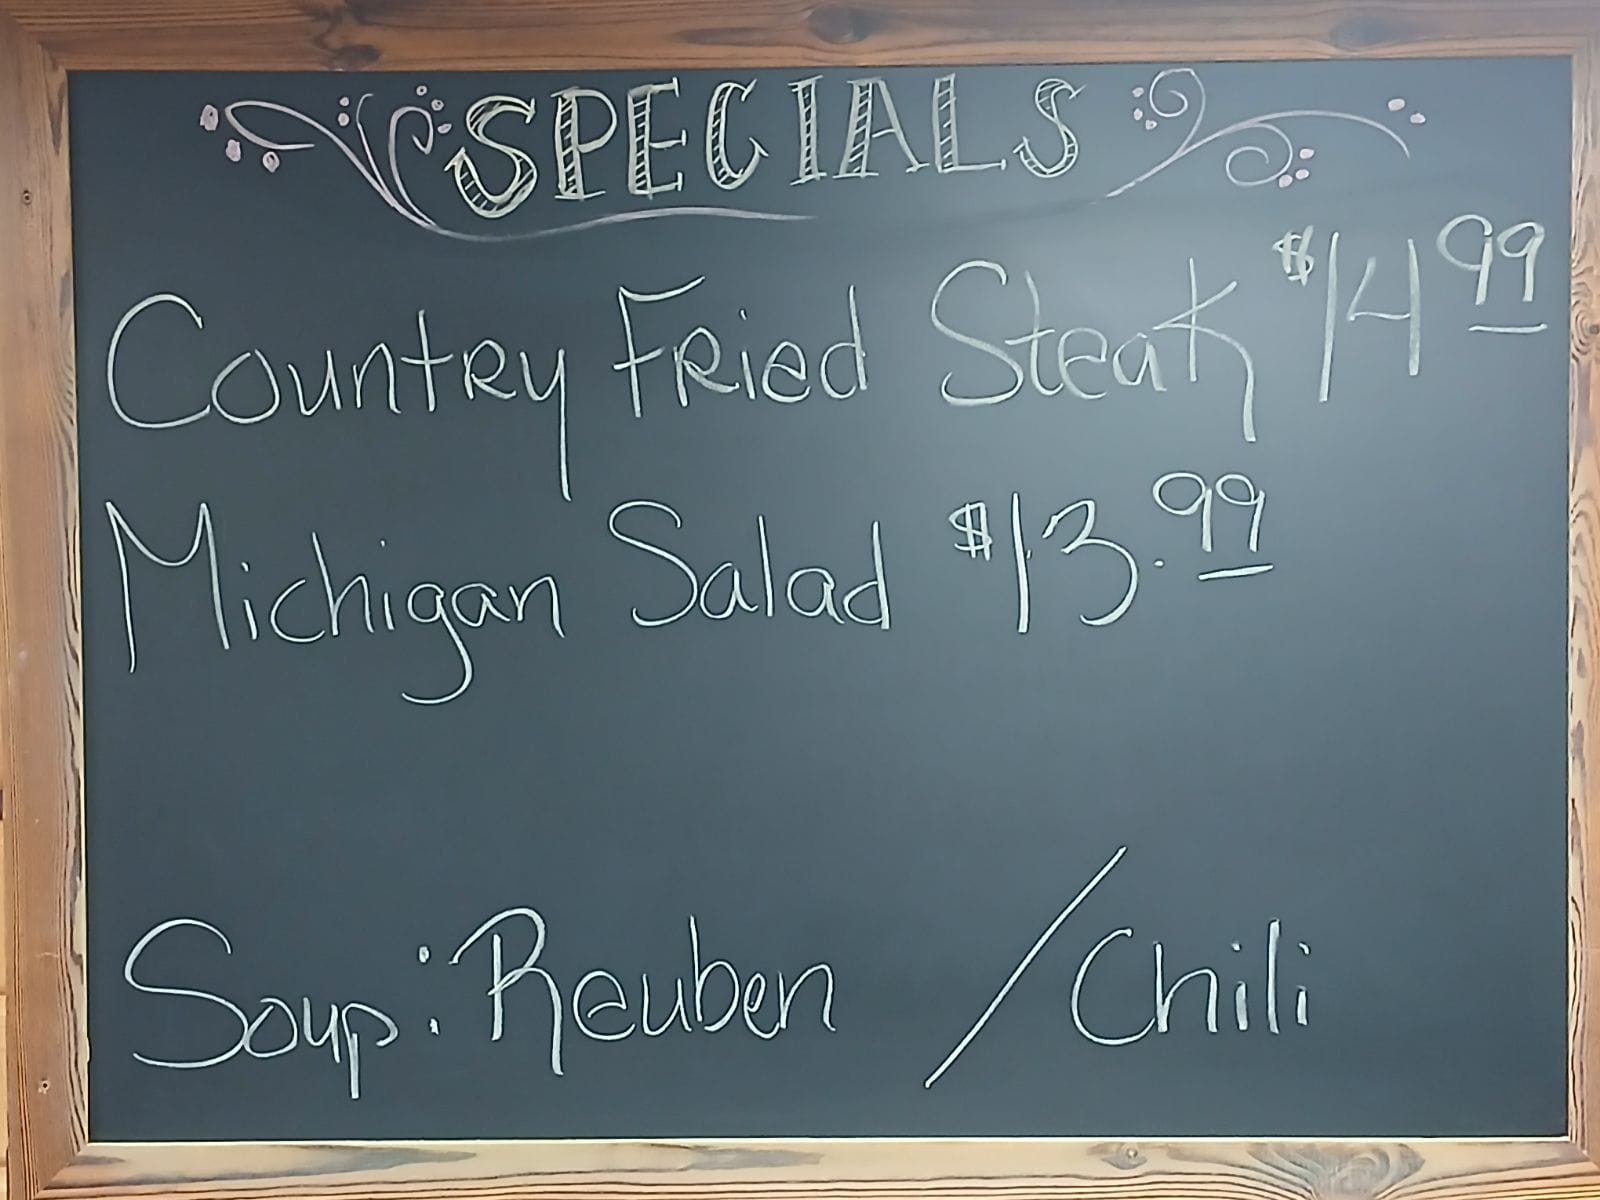 SPECIALS
Country Fried Steak $14 99
Michigan Salad $13.99
Soup: Reuben / Chili